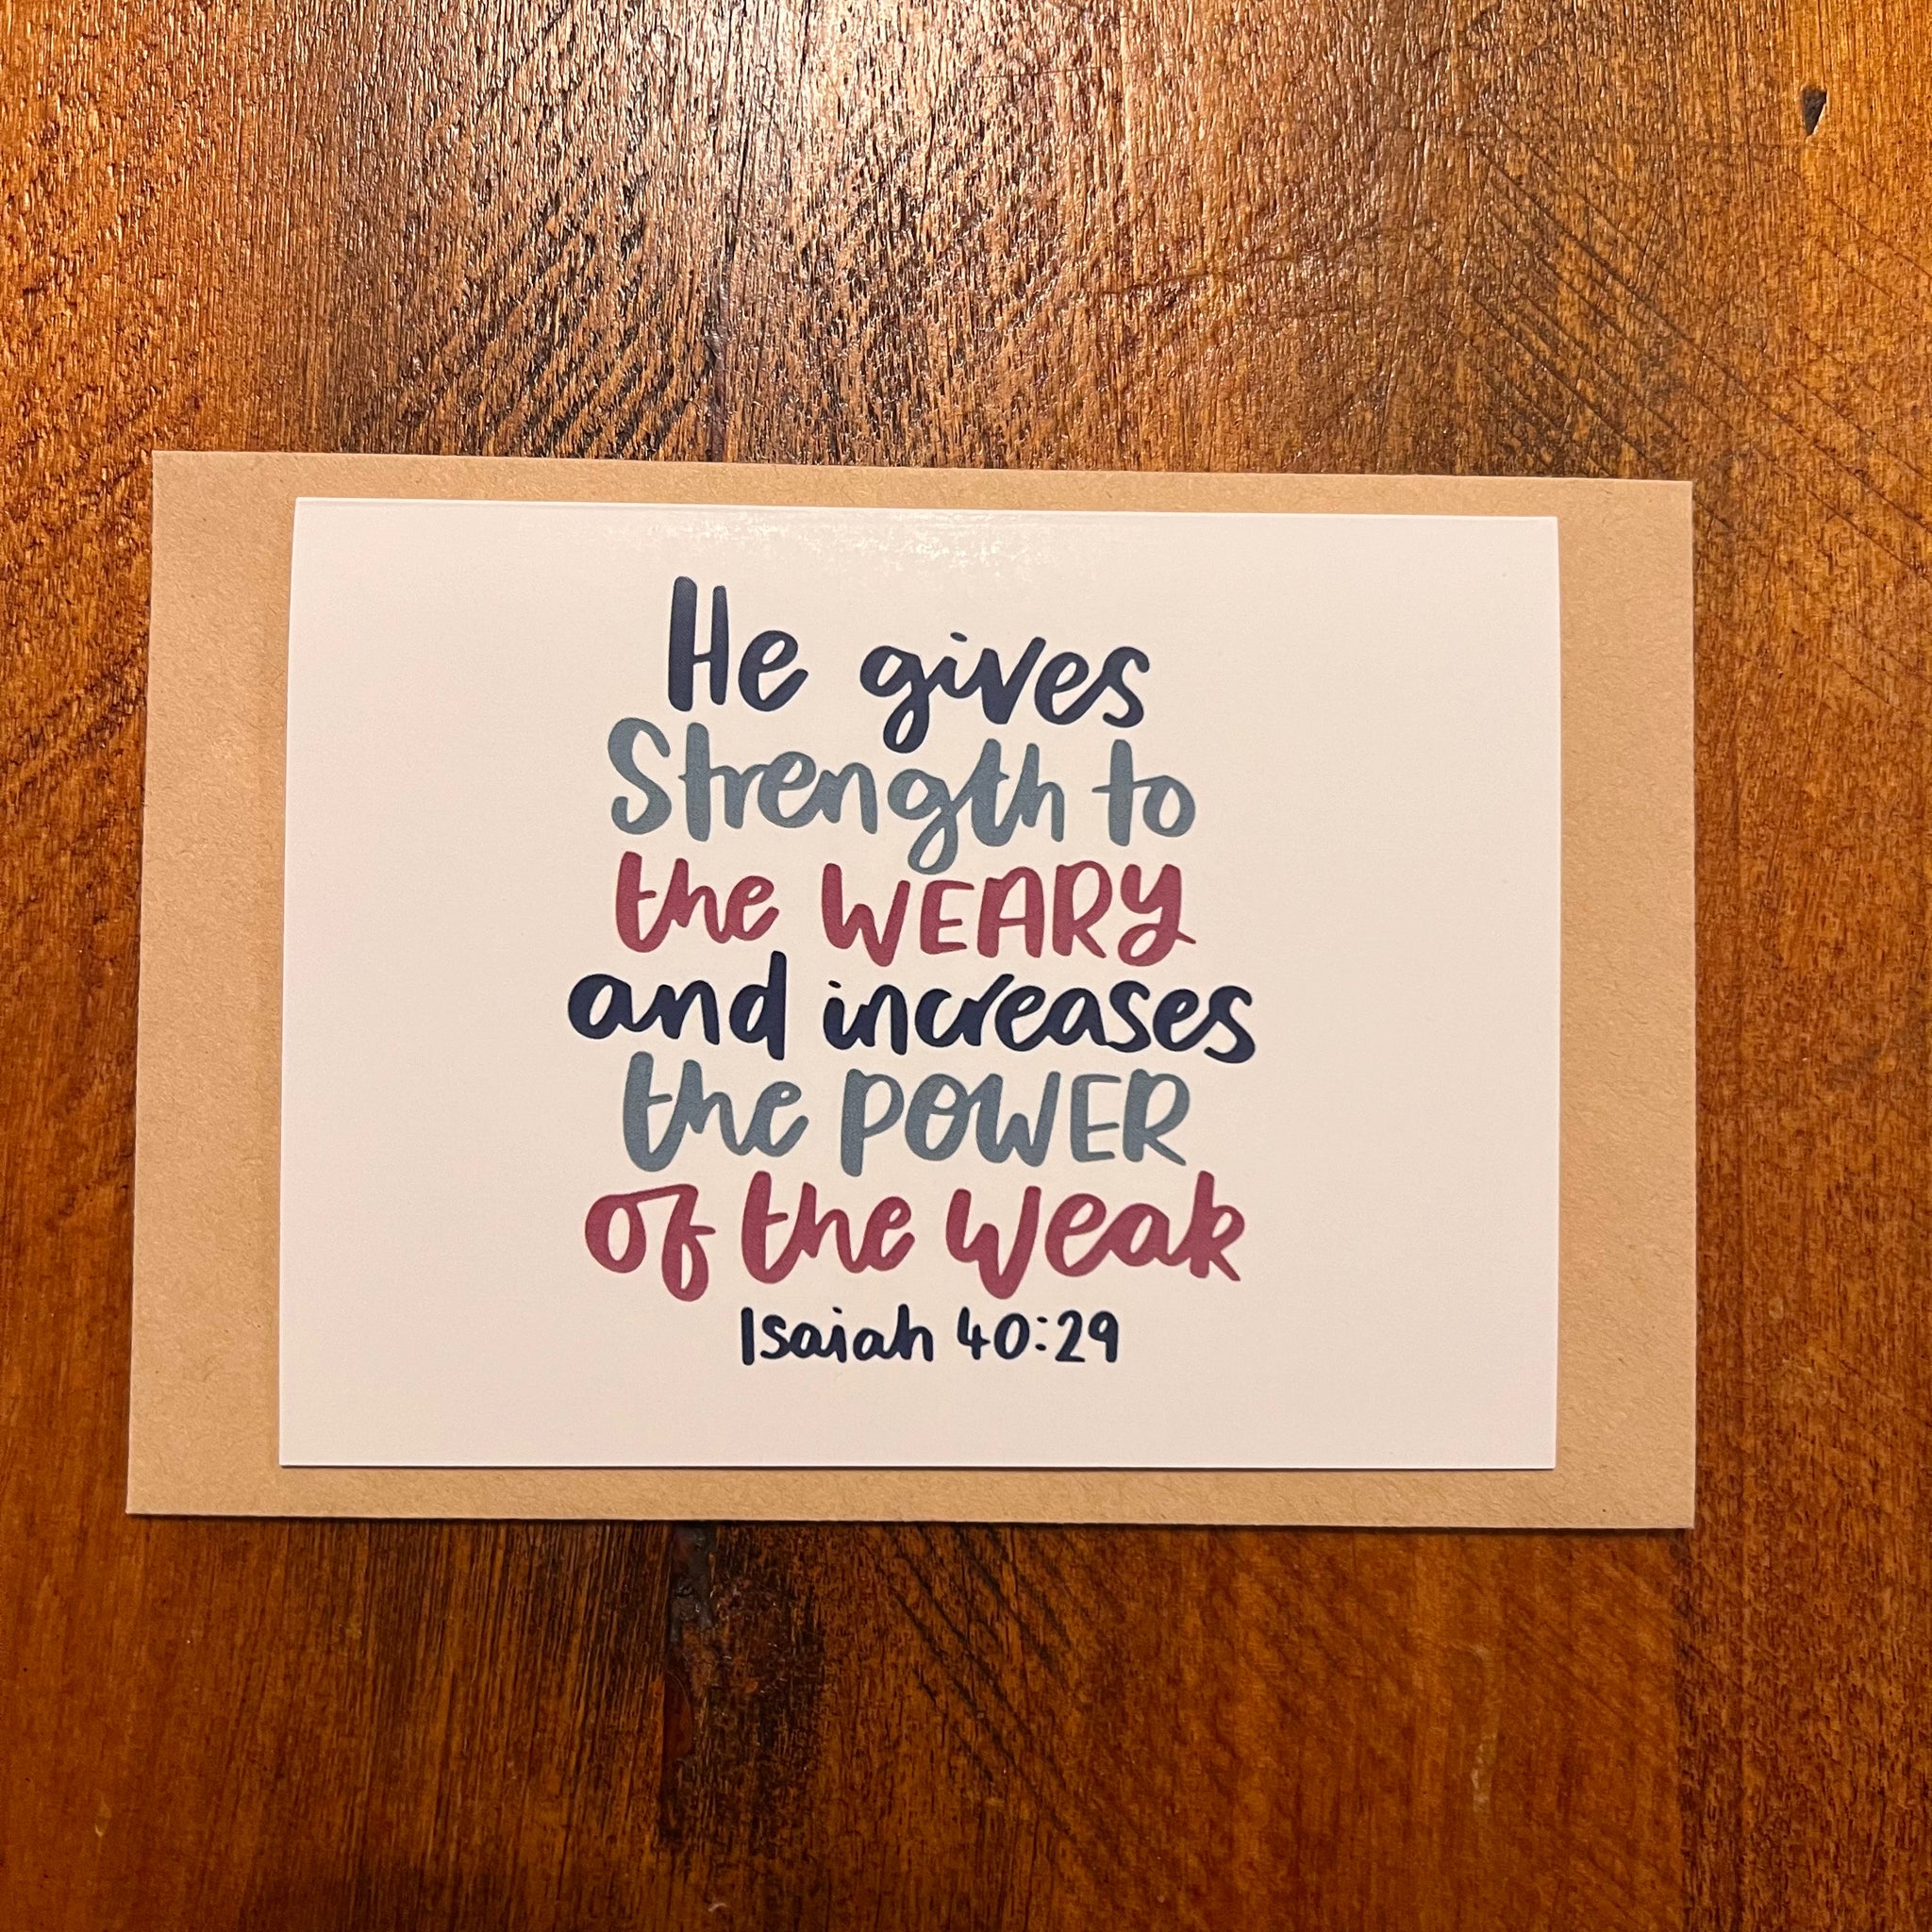 He gives
Strength to
the WEARY
and increases
the POWER
of the weak
Isaiah 40:29